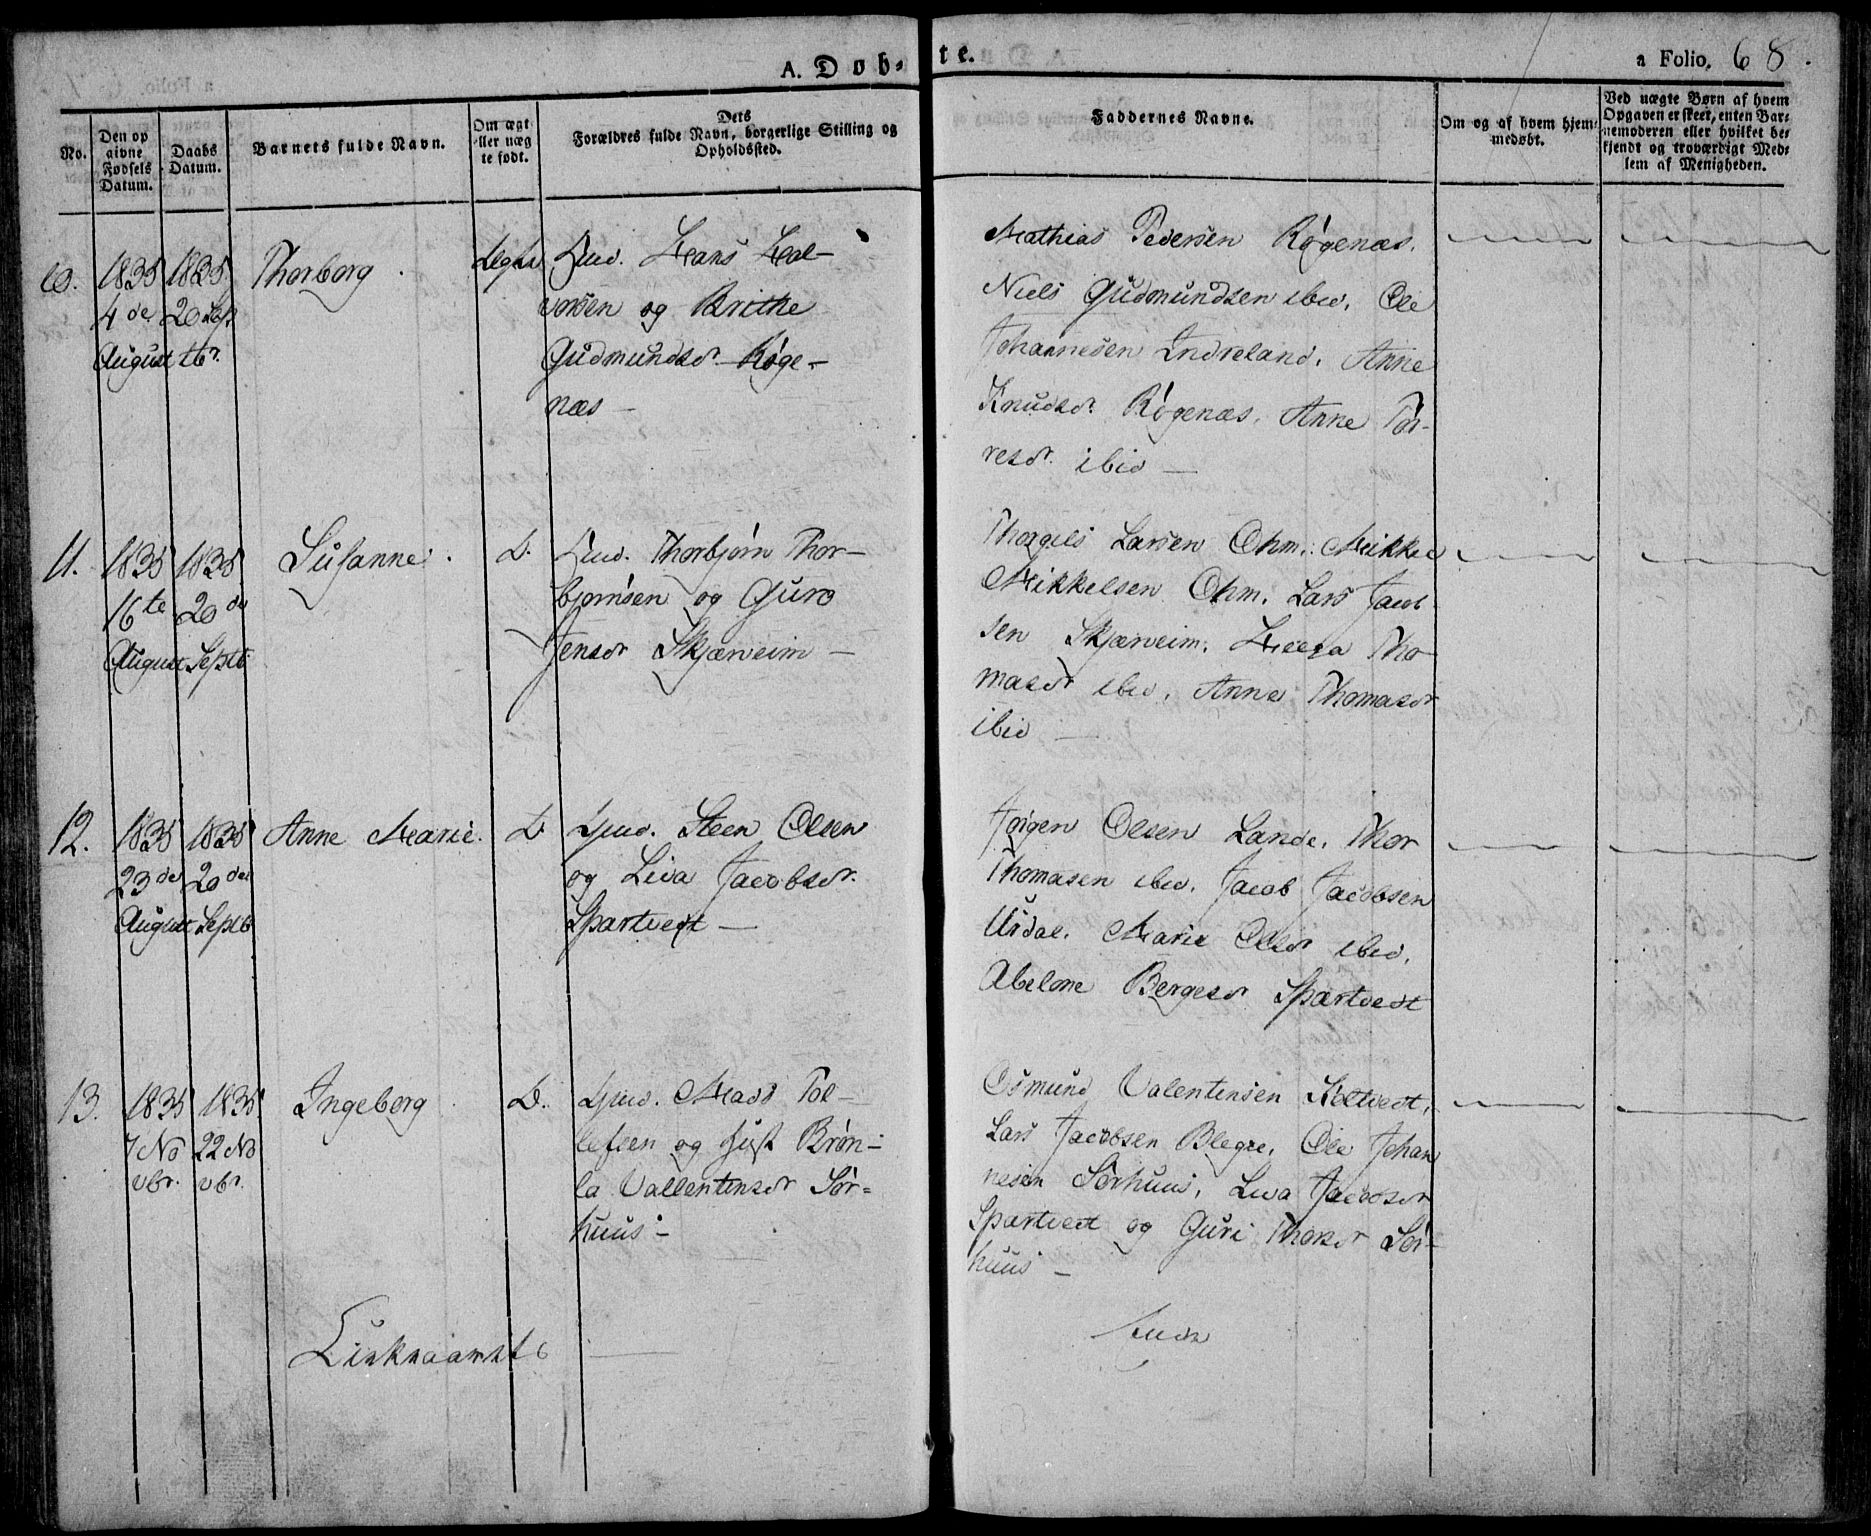 A. Døb-
te.
a Folio. 68.
No.
Den op
givne
Fødsels
Datum.
Daabs
Datum.
Barnets fulde Navn.
Om ægt
eller uæg
te født.
Dets
Forældres fulde Navn, borgerlige Stilling og
Opholdssted.
Faddernes Navne.
Om og af hvem hjem-
medøbt.
Ved uægte Børn af hvem
Opgaven er skeet, enten Bar-
nemoderen eller hvilket be-
kjendt og troværdigt Med-
lem af Menigheden.
10.
1835
4de
August
1835
20 Sep
tbr.
Thorborg.
Ægte
Gmd. Hans Hal-
vorsen og Brithe
Gudmundsdr Røge-
næs —
Mathias Pedersen Røgenæs.
Niels Gudmundsen ibid. Ole
Johannesen Indreland. Anne
Knudsdr. Røgenæs. Anne Tør-
resdr. ibid —
11.
1835
16te
August
1835
20de
Septb.
Susanne.
D.
Gmd. Thorbjørn Thor-
bjørnsen og Guro
Jensdr Skjærveim —
Thorgils Larsen Ohm. Mikkel
Mikkelsen Ohm. Lars Jacob-
sen Skjærveim. Helga Tho-
masdr ibid. Anne Thomasdr
ibid —
12.
1835
23de
August
1835
20de
Septb
Anne Marie.
D.
Gmd. Steen Olsen
og Liva Jacobsdr.
Spartvedt —
Jørgen Olsen Lande. Thor
Thomasen ibid. Jacob Jacobsen
Urdal. Marie Olsdr ibid.
Abelone Bergesdr Spartvedt
13.
1835
7 No
vbr.
1835
22 No
vbr.
Ingeborg
D.
Gmd. Mads Tol-
lefsen og Hust Brøn-
la Vallentinsdr Sør-
huus —
Osmund Valentinsen Keltvedt.
Lars Jacobsen Blegre. Ole Johan
nesen Sørhuus. Liva Jacobsdr
Spartvedt og Guri Thorsdr Sør-
huus —
Kirkeaarets —
Ende